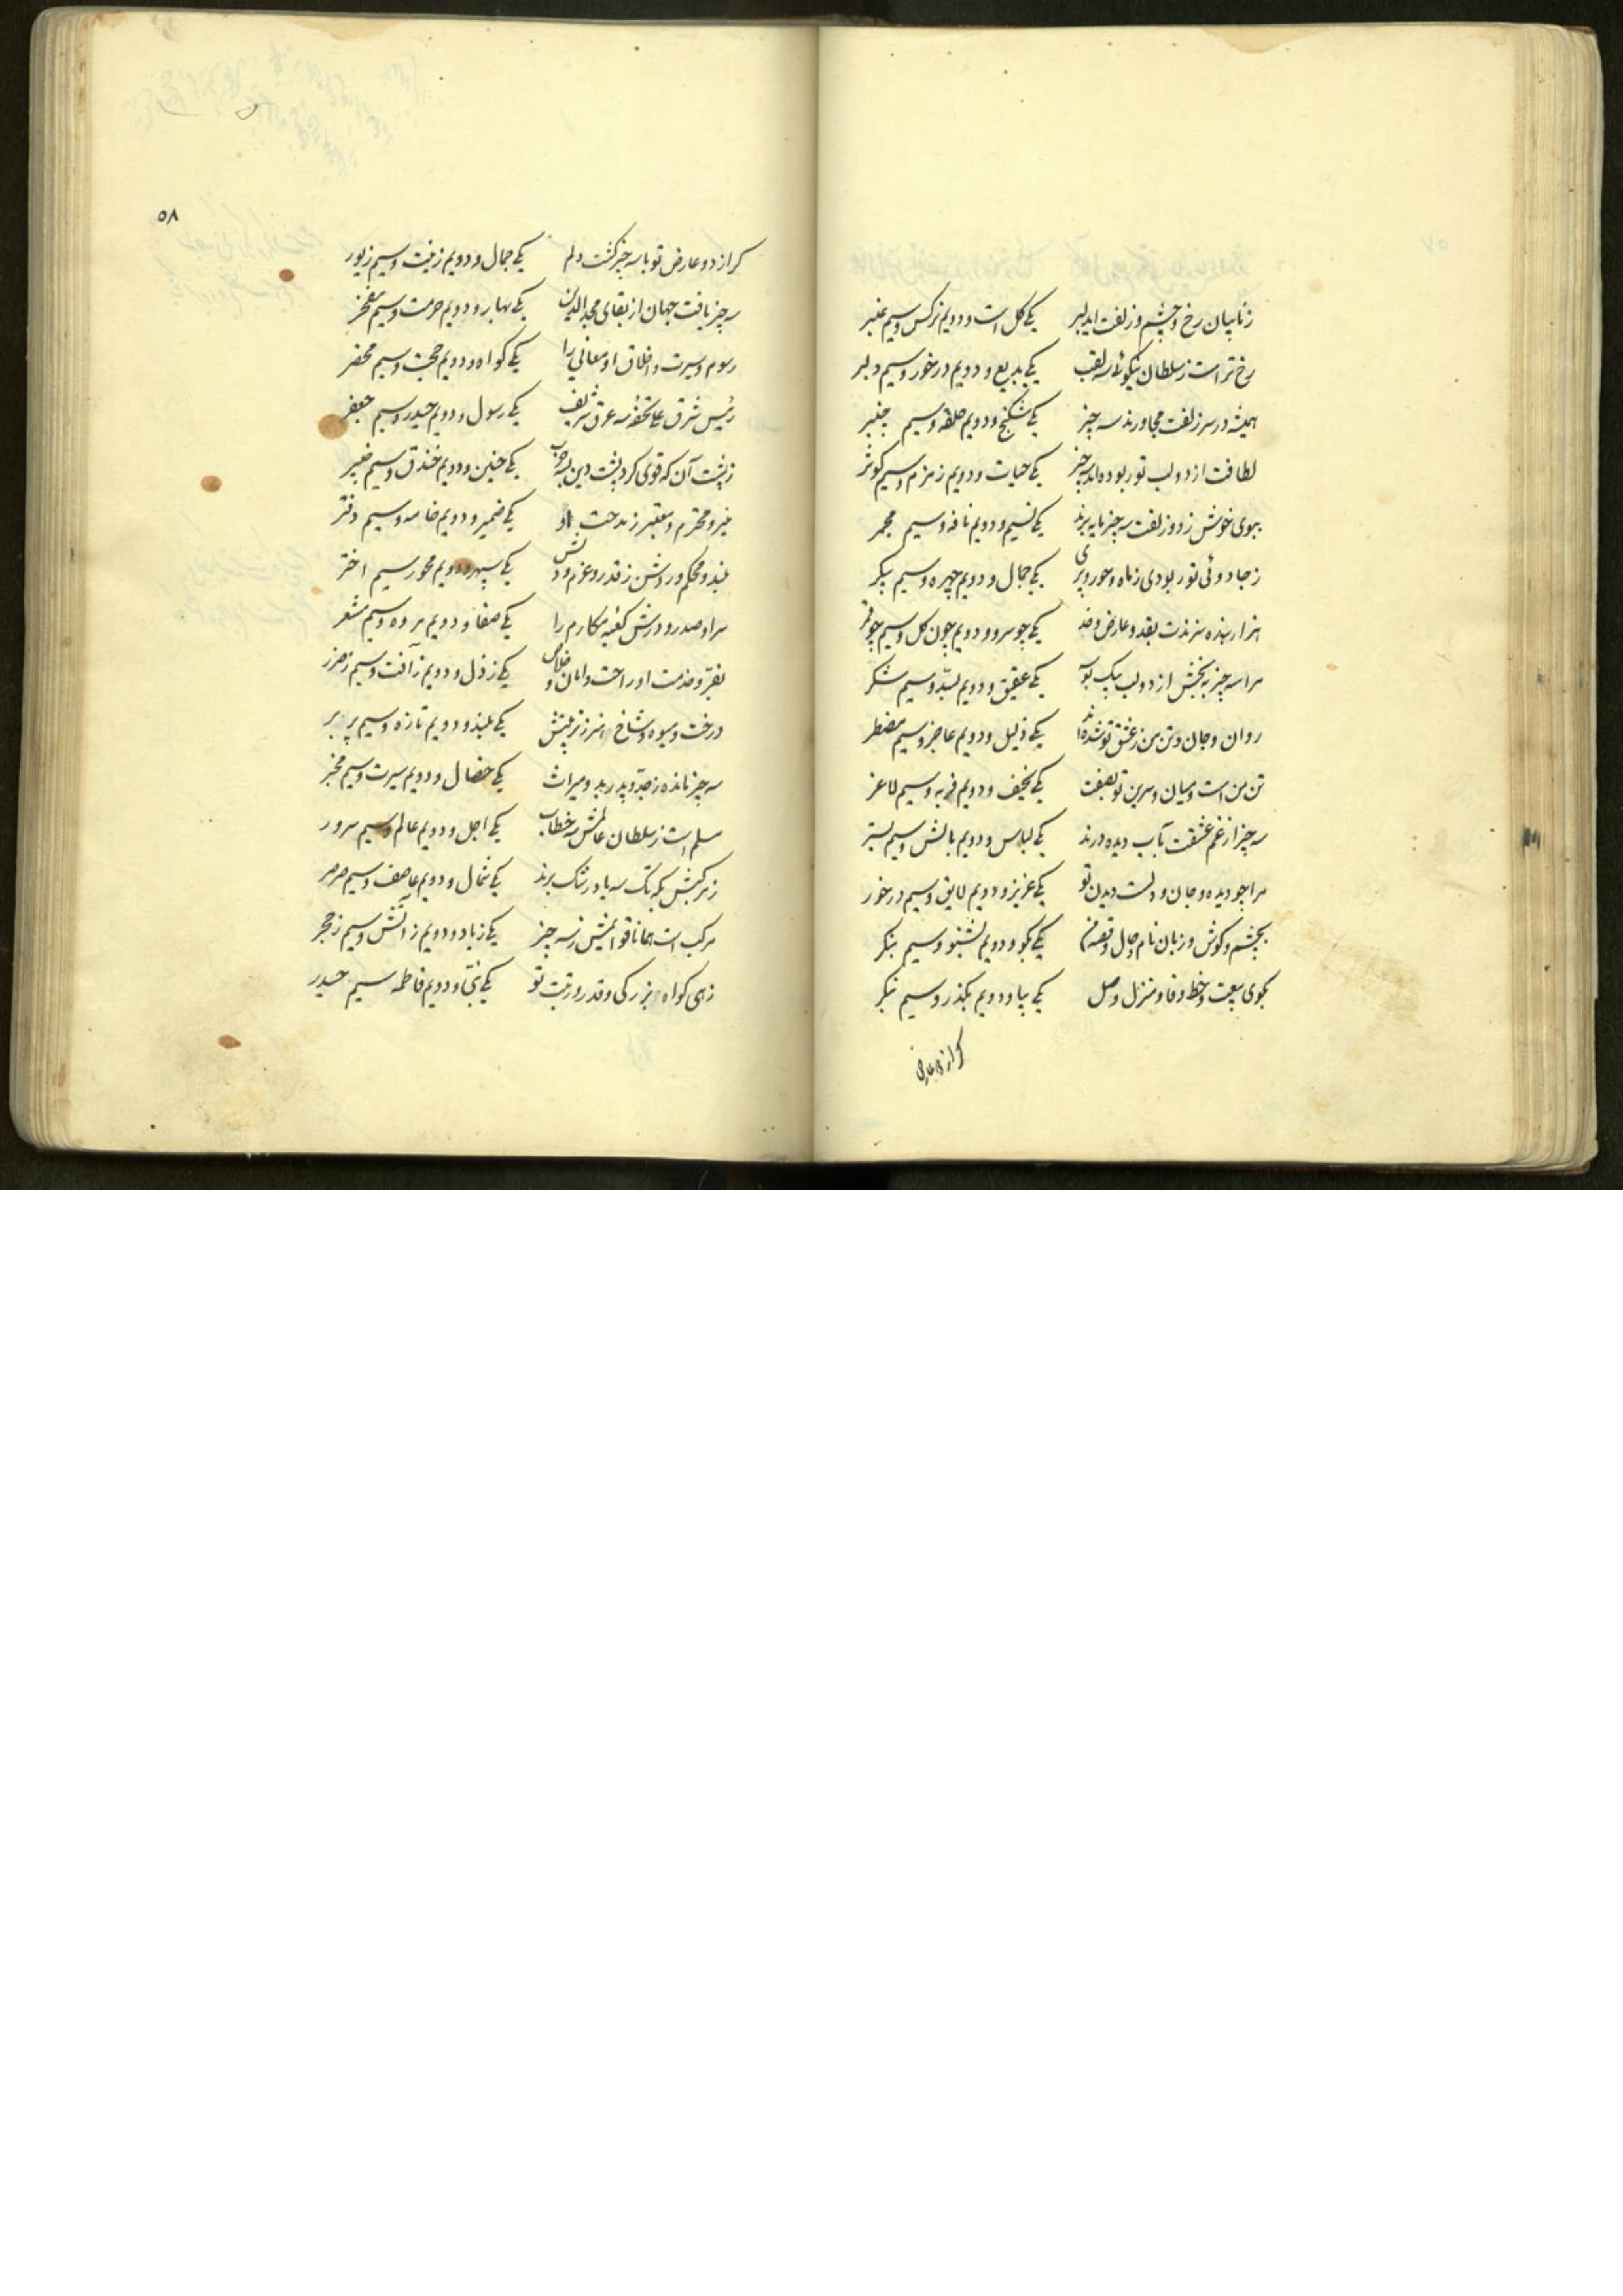 ز نایبان رخ و چشم و زلفت ای دلبر یکی گل است و دویم نرگس و سیم عنبر
رخ تراست ز سلطان نیکوئی سه لقب یکی بدیع و دویم درخور و سیم دلبر
همیشه در سر زلفت مجاورند سه چیز یکی شکنج و دویم حلقه و سیم چنبر
لطافت از دو لب تو ربوده‌اند سه چیز یکی حیات و دویم زمزم و سیم کوثر
ببوی خوش ز دو زلفت سه چیز مایه برند یکی نسیم و دویم نافه و سیم مجمر
ز جادوئی تو ربودی ز ماه و حور و پری یکی جمال و دویم چهره و سیم پیکر
هزار بنده سزندت بقد و عارض و خد یکی چو سرو و دویم چون گل و سیم چو قمر
مرا سه چیز ببخش از دو لب بیک بوسه یکی عقیق و دویم بسد و سیم شکر
روان و جان و تن من ز عشق تو شده‌اند یکی ذلیل و دویم عاجز و سیم مضطر
تن من است و میان و سرین تو بصفت یکی نحیف و دویم فربه و سیم لاغر
سه چیز از غم عشقت بآب دیده درند یکی لباس و دویم بالش و سیم بستر
مرا چو دیده و جان و دلست دیدن تو یکی عزیز و دویم لایق و سیم درخور
بچشم و گوش و زبان نام و حال و قصه من یکی بگو و دویم بشنو و سیم بنگر
بکوی بیعت و خط وفا و منزل وصل یکی بیا و دویم بگذر و سیم بنگر
کر از دو عارض
۵۸
کر از دو عارض تو با سه چیز گشت دلم یکی جمال و دویم زینت و سیم زیور
سه چیز یافت جهان از بقای مجدالدین یکی بهار و دویم حرمت و سیم مفخر
رسوم و سیرت و اخلاق او معانی را یکی گواه و دویم حجت و سیم محضر
رئیس شرق علی تحفه سه عرق شریف یکی رسول و دویم حیدر و سیم جعفر
ز پشت آن که قوی کرد پشت دین بسه حرب یکی حنین و دویم خندق و سیم خیبر
منیر و محترم و معتبر ز مدحت او یکی ضمیر و دویم خامه و سیم دفتر
بلند و محکم و روشن ز قدر و عزم و دلش یکی سپهر و دویم محور سیم اختر
سرا و صدر و درش کعبه مکارم را یکی صفا و دویم مروه و سیم مشعر
بفر و خدمت او راحت و امان و خلاص یکی ز ذل و دویم ز آفت و سیم ز ضرر
درخت و میوه و شاخ هنر ز تربیتش یکی بلند و دویم تازه و سیم پر بر
سه چیز مانده ز جد و پدر بدو میراث یکی خصال و دویم سیرت و سیم مخبر
مسلم است ز سلطان عالمش سه خطاب یکی اجل و دویم عالم و سیم سرور
ز مرکبش بگه تک سه باد رشک برند یکی شمال و دویم عاصف و سیم صرصر
مرکب است همانا قوائمش ز سه چیز یکی ز باد و دویم ز آتش و سیم ز حجر
زهی گواه بزرگی و قدر و رتبت تو یکی نبی و دویم فاطمه سیم حیدر